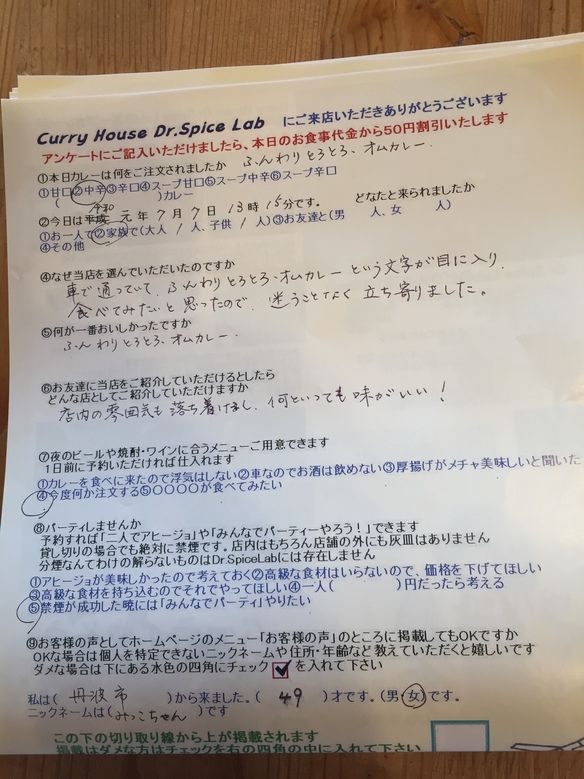 Curry House Dr.Spice Lab にご来店いただきありがとうございます
アンケートにご記入いただけましたら、本日のお食事代金から50円割引いたします
①本日カレーは何をご注文されましたか ふんわりとろとろ、オムカレー.
①甘口②中辛③辛口④スープ甘口⑤スープ中辛⑥スープ辛口
( )カレー
令和
②今日は平成 元年7月7日13時15分です。 どなたと来られましたか
①お一人で②家族で(大人 1人、子供 1人)③お友達と(男 人、女 人)
④その他
④なぜ当店を選んでいただいたのですか
車で通っていて、ふんわりとろとろ、オムカレーという文字が目に入り、
食べてみたいと思ったので、迷うことなく立ち寄りました。
⑤何が一番おいしかったですか
ふんわりとろとろ、オムカレー.
⑥お友達に当店をご紹介していただけるとしたら
どんな店としてご紹介していただけますか
店内の雰囲気も落ち着けるし、何といっても味がいい!
⑦夜のビールや焼酎・ワインに合うメニューご用意できます
1日前に予約いただければ仕入れます
①カレーを食べに来たので浮気はしない②車なのでお酒は飲めない③厚揚げがメチャ美味しいと聞いた
④今度何か注文する⑤〇〇〇〇が食べてみたい
⑧パーティしませんか
予約すれば「二人でアヒージョ」や「みんなでパーティーやろう!」できます
貸し切りの場合でも絶対に禁煙です。店内はもちろん店舗の外にも灰皿はありません
分煙なんてわけの解らないものはDr.SpiceLabには存在しません
①アヒージョが美味しかったので考えておく②高級な食材はいらないので、価格を下げてほしい
③高級な食材を持ち込むのでそれでやってほしい④一人( )円だったら考える
⑤禁煙が成功した暁には「みんなでパーティ」やりたい
⑨お客様の声としてホームページのメニュー「お客様の声」のところに掲載してもOKですか
OKな場合は個人を特定できないニックネームや住所・年齢など教えていただくと嬉しいです
ダメな場合は下にある水色の四角にチェック を入れて下さい
私は( 丹波市 )から来ました。( 49 )才です。(男・女)です。
ニックネームは(みっこちゃん)です
この下の切り取り線から上が掲載されます
掲載はダメな方はチェックを右の四角の中に入れて下さい